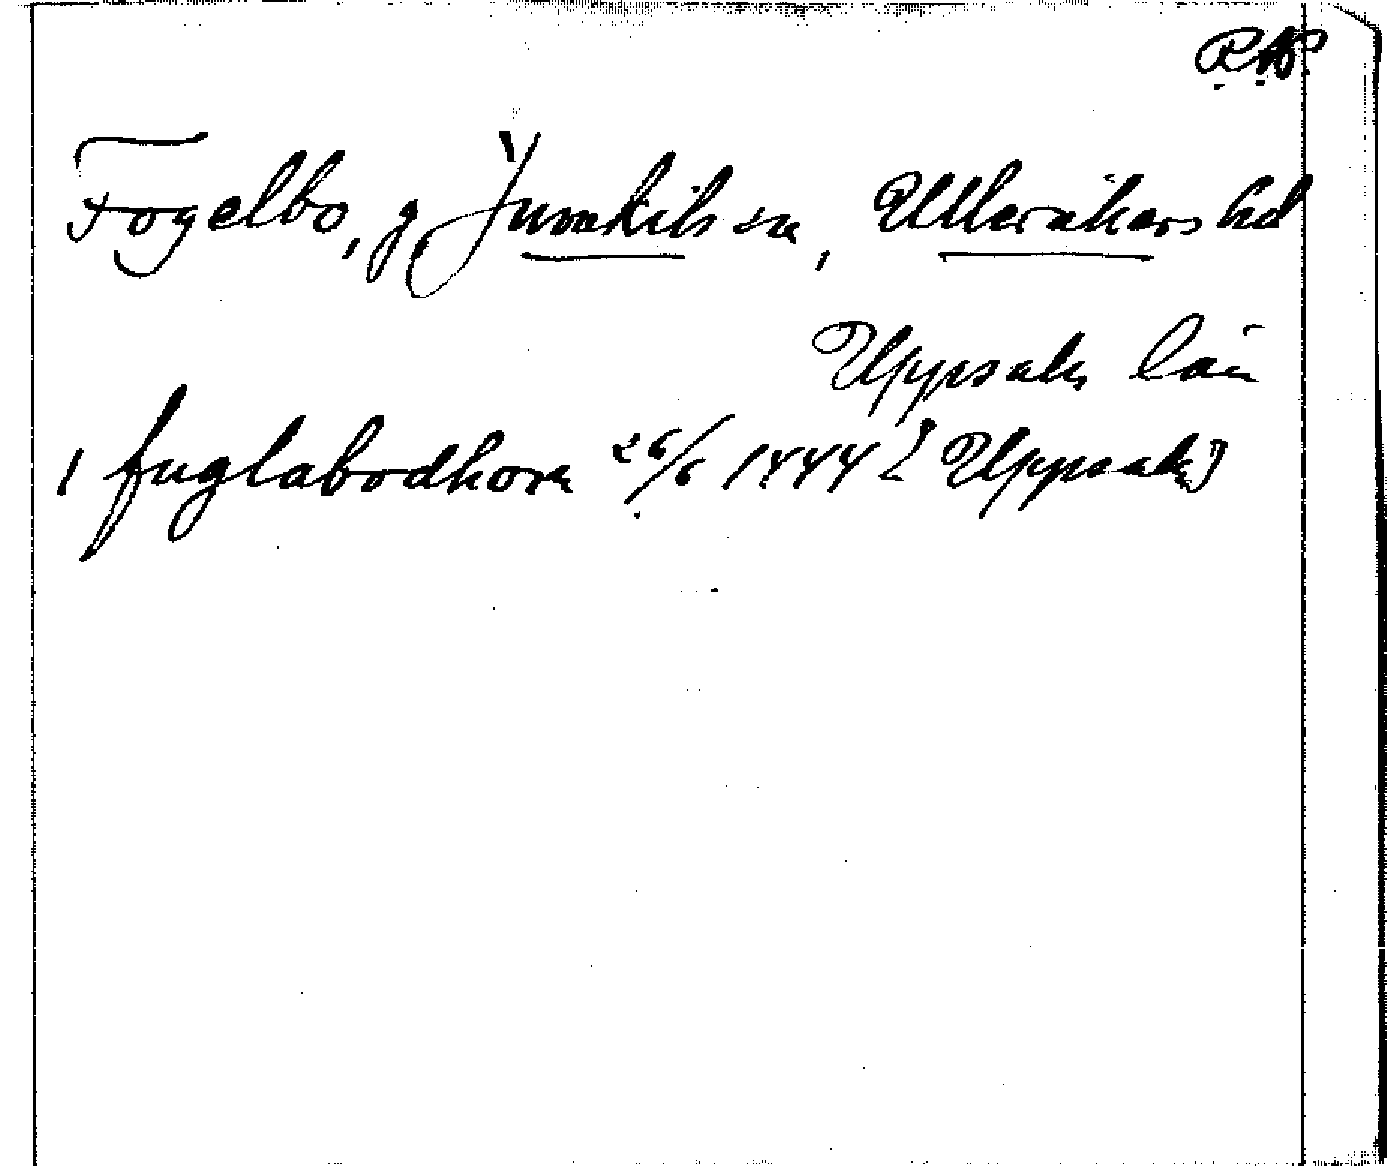 Fogelbo, g Jumkils sn, Ulleråkers hd
Uppsala län
i fuglabodhom 26/6 1444 [Uppsala]